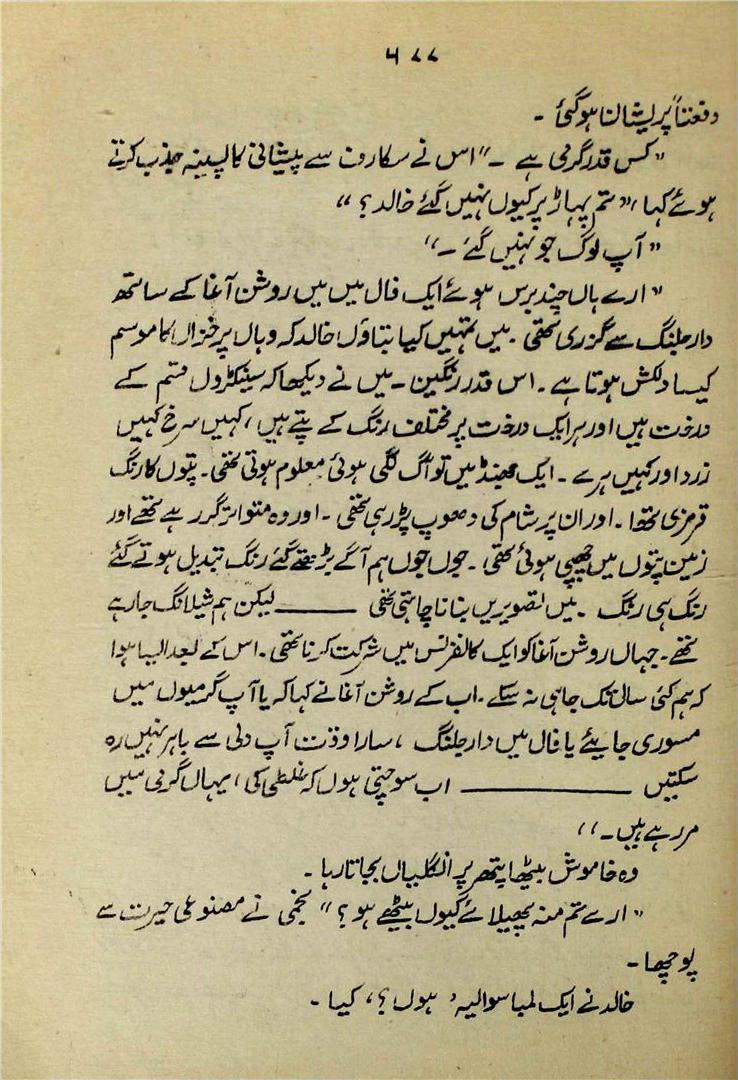 ۵۷۷
دفعتاً پریشان ہو گئی ۔
”کس قدر گرمی ہے ۔“ اس نے سکارف سے پیشانی کا پسینہ جذب کرتے
ہوئے کہا، ”تم پہاڑ پر کیوں نہیں گئے خالد؟“
”آپ لوگ جو نہیں گئے ۔“
”ارے ہاں چند برس ہوئے ایک فال میں میں روشن آغا کے ساتھ
دارجلنگ سے گزری تھی ۔ میں تمہیں کیا بتاؤں خالد کہ وہاں پر خزاں کا موسم
کیسا دلکش ہوتا ہے ۔ اس قدر رنگین ۔ میں نے دیکھا کہ سینکڑوں قسم کے
درخت ہیں اور ہر ایک درخت پر مختلف رنگ کے پتے ہیں، کہیں سرخ کہیں
زرد اور کہیں ہرے ۔ ایک جھنڈ میں تو آگ لگی ہوئی معلوم ہوتی تھی ۔ پتوں کا رنگ
قرمزی تھا ۔ اور ان پر شام کی دھوپ پڑ رہی تھی ۔ اور وہ متواتر گر رہے تھے اور
زمین پتوں میں چھپی ہوئی تھی ۔ جوں جوں ہم آگے بڑھتے گئے رنگ تبدیل ہوتے گئے
رنگ ہی رنگ ۔ میں تصویریں بنانا چاہتی تھی ——— لیکن ہم شیلانگ جا رہے
تھے ۔ جہاں روشن آغا کو ایک کانفرنس میں شرکت کرنا تھی ۔ اس کے بعد ایسا ہوا
کہ ہم کئی سال تک جا ہی نہ سکے ۔ اب کے روشن آغا نے کہا کہ یا آپ گرمیوں میں
مسوری جایئے یا فال میں دارجلنگ، سارا وقت آپ دلی سے باہر نہیں رہ
سکتیں ——————— اب سوچتی ہوں کہ غلطی کی، یہاں گرمی میں
مر رہے ہیں ۔“
وہ خاموش بیٹھا پتھر پر انگلیاں بجاتا رہا ۔
”ارے تم منہ پھیلائے کیوں بیٹھے ہو؟“ نجمی نے مصنوعی حیرت سے
پوچھا ۔
خالد نے ایک لمبا سوالیہ ’ہوں؟‘ کیا ۔